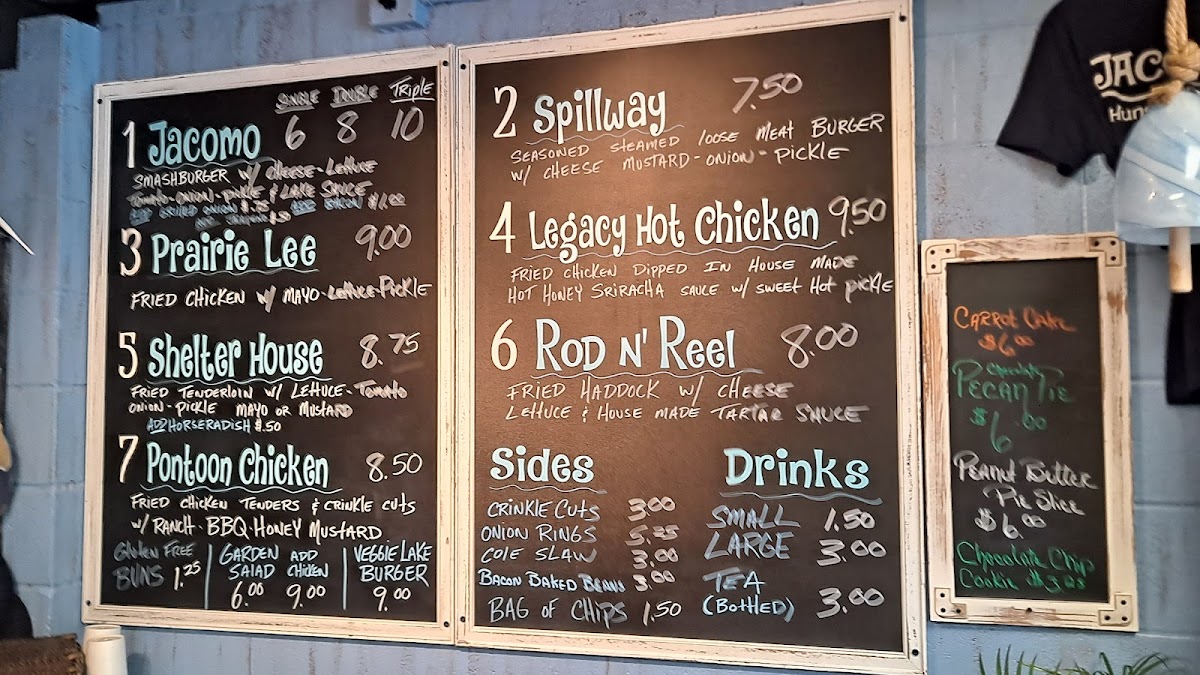 SINGLE DOUBLE TRIPLE
1 Jacomo 6 8 10
SMASHBURGER W/ CHEESE-LETTUCE
TOMATO-ONION-PICKLE & LAKE SAUCE
ADD GRILLED ONION $.75 ADD BACON $1.00
$.50
3 Prairie Lee 9.00
FRIED CHICKEN W/ MAYO-LETTUCE-PICKLE
5 Shelter House 8.75
FRIED TENDERLOIN W/ LETTUCE-TOMATO
ONION-PICKLE MAYO OR MUSTARD
ADD HORSERADISH $.50
7 Pontoon Chicken 8.50
FRIED CHICKEN TENDERS & CRINKLE CUTS
W/ RANCH-BBQ-HONEY MUSTARD
Gluten FREE
BUNS 1.25
GARDEN ADD
SALAD CHICKEN
6.00 9.00
VEGGIE LAKE
BURGER
9.00
2 Spillway 7.50
SEASONED STEAMED LOOSE MEAT BURGER
W/ CHEESE MUSTARD-ONION-PICKLE
4 Legacy Hot Chicken 9.50
FRIED CHICKEN DIPPED IN HOUSE MADE
HOT HONEY SRIRACHA SAUCE W/ SWEET HOT PICKLE
6 Rod N' Reel 8.00
FRIED HADDOCK W/ CHEESE
LETTUCE & HOUSE MADE TARTAR SAUCE
Sides
CRINKLE CUTS 3.00
ONION RINGS 5.25
COLE SLAW 3.00
BACON BAKED BEANS 3.00
BAG OF CHIPS 1.50
Drinks
SMALL 1.50
LARGE 3.00
TEA
(BOTTLED) 3.00
CARROT CAKE
$6.00
Chocolate
PECAN PIE
$6.00
PEANUT BUTTER
PIE SLICE
$6.00
Chocolate Chip
Cookie $3.00
JACO
Hun